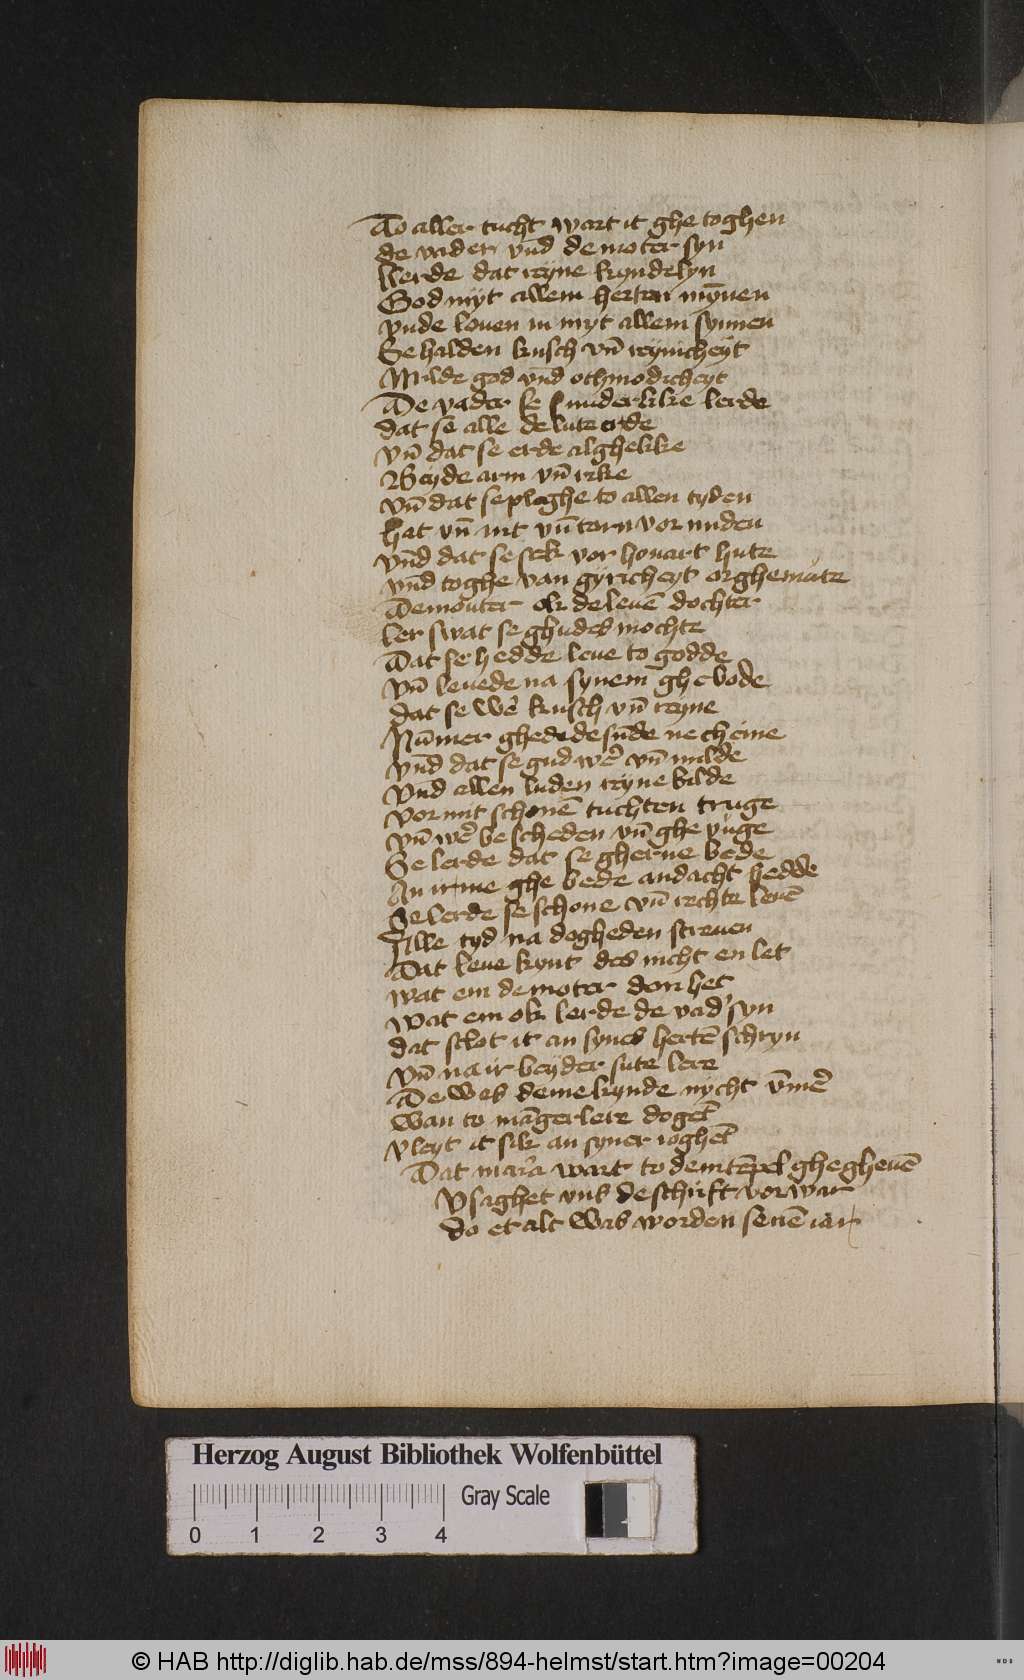 To aller tucht wart it ghe toghen
de vader vnd de moter syn
Lerde dat reyne kyndelyn
God myt allem herten mȳnen
vnde louen in myt allem synnen
Se halden kusch vn̄ reynicheyt
Milde god vnd othmodicheyt
De vader se sunderlike lerde
dat se alle de lute erde
vn̄ dat se erde alghelike
Beyde arm vn̄ rike
vn̄ dat se plaghe to allen tyden
hat vn̄ nit vn̄ torn vor miden
vnd dat se sek vor houart hute
vnd toghe van gyricheyt orghemute
De mouter ok de leuē dochter
ler swat se ghudes mochte
Dat se hedde leue to godde
vn̄ leuede na synem ghebode
dat se wer̄ kusch vn̄ reyne
Nūmer ghedede sūde necheine
vnd dat se gud wer̄ vn̄ milde
vnd allen luden reyne bilde
vor mit schonē tuchten truge
vn̄ wer̄ be scheden vn̄ ghe vuge
Se lerde dat se gherne bede
An irme ghe bede andacht hedde
Se lerde se schone vn̄ rechte leuē
Alle tyd na dogheden streuen
Dat leue kynt des nicht en let
wat em de moter don het
wat em ok lerde de vad' syn
dat slot it an synes hertē schryn
vn̄ na ir beyder sute lere
De wes deme kynde nycht vm̄er̄
wan to māger lere dogēt
vleyt it sik an syner ioghēt
Dat maria wart to dem tēpel ghegheuē
Vsaghet vns de schrift vorwar
do et alt was worden seuē iar
Herzog August Bibliothek Wolfenbüttel
Gray Scale
0 1 2 3 4
© HAB http://diglib.hab.de/mss/894-helmst/start.htm?image=00204